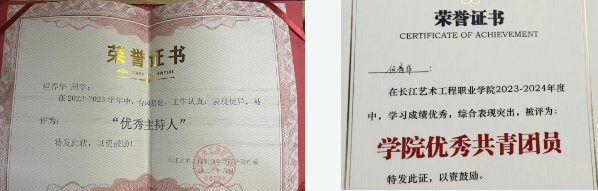 荣誉证书
春华 同学：
在2022-2023学年中，工作认真，表现优异，被
评为：
“优秀主持人”
特发此状，以资鼓励！
荣誉证书
CERTIFICATE OF ACHIEVEMENT
春华：
在长江艺术工程职业学院2023-2024年度
中，学习成绩优秀，综合表现突出，被评为：
学院优秀共青团员
特发此证，以资鼓励。